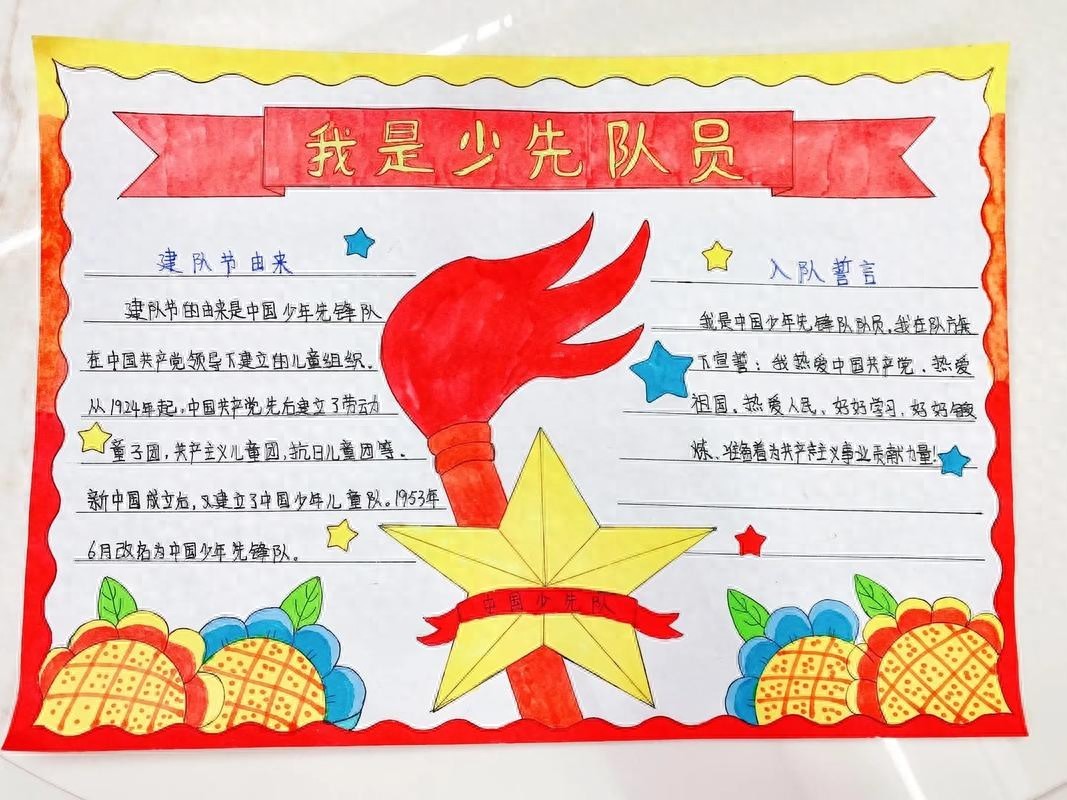 我是少先队员
建队节由来
建队节的由来是中国少年先锋队
在中国共产党领导下建立的儿童组织。
从1924年起,中国共产党先后建立了劳动
童子团,共产主义儿童团,抗日儿童团等。
新中国成立后,又建立了中国少年儿童队。1953年
6月改名为中国少年先锋队。
入队誓言
我是中国少年先锋队队员。我在队旗
下宣誓:我热爱中国共产党、热爱
祖国、热爱人民、好好学习、好好锻
炼、准备着为共产主义事业贡献力量!
中国少先队